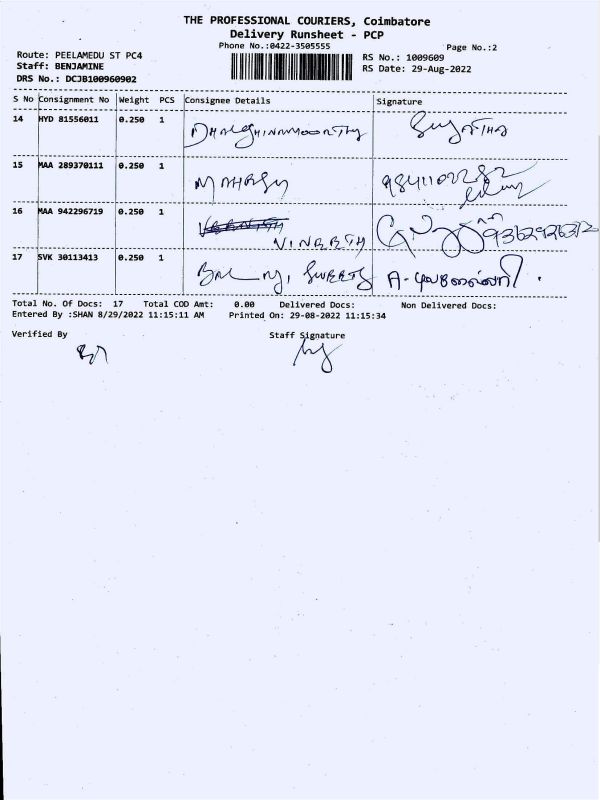 THE PROFESSIONAL COURIERS, Coimbatore
Delivery Runsheet - PCP
Phone No.:0422-3505555 Page No.:2
Route: PEELAMEDU ST PC4 RS No.: 1009609
Staff: BENJAMINE RS Date: 29-Aug-2022
DRS No.: DCJB100960902
S No Consignment No Weight PCS Consignee Details Signature
14 HYD 81556011 0.250 1
15 MAA 289370111 0.250 1 MAHESH
16 MAA 942296719 0.250 1
VINEETH
17 SVK 30113413 0.250 1 SWEETS A.
Total No. Of Docs: 17 Total COD Amt: 0.00 Delivered Docs: Non Delivered Docs:
Entered By :SHAN 8/29/2022 11:15:11 AM Printed On: 29-08-2022 11:15:34
Verified By Staff Signature